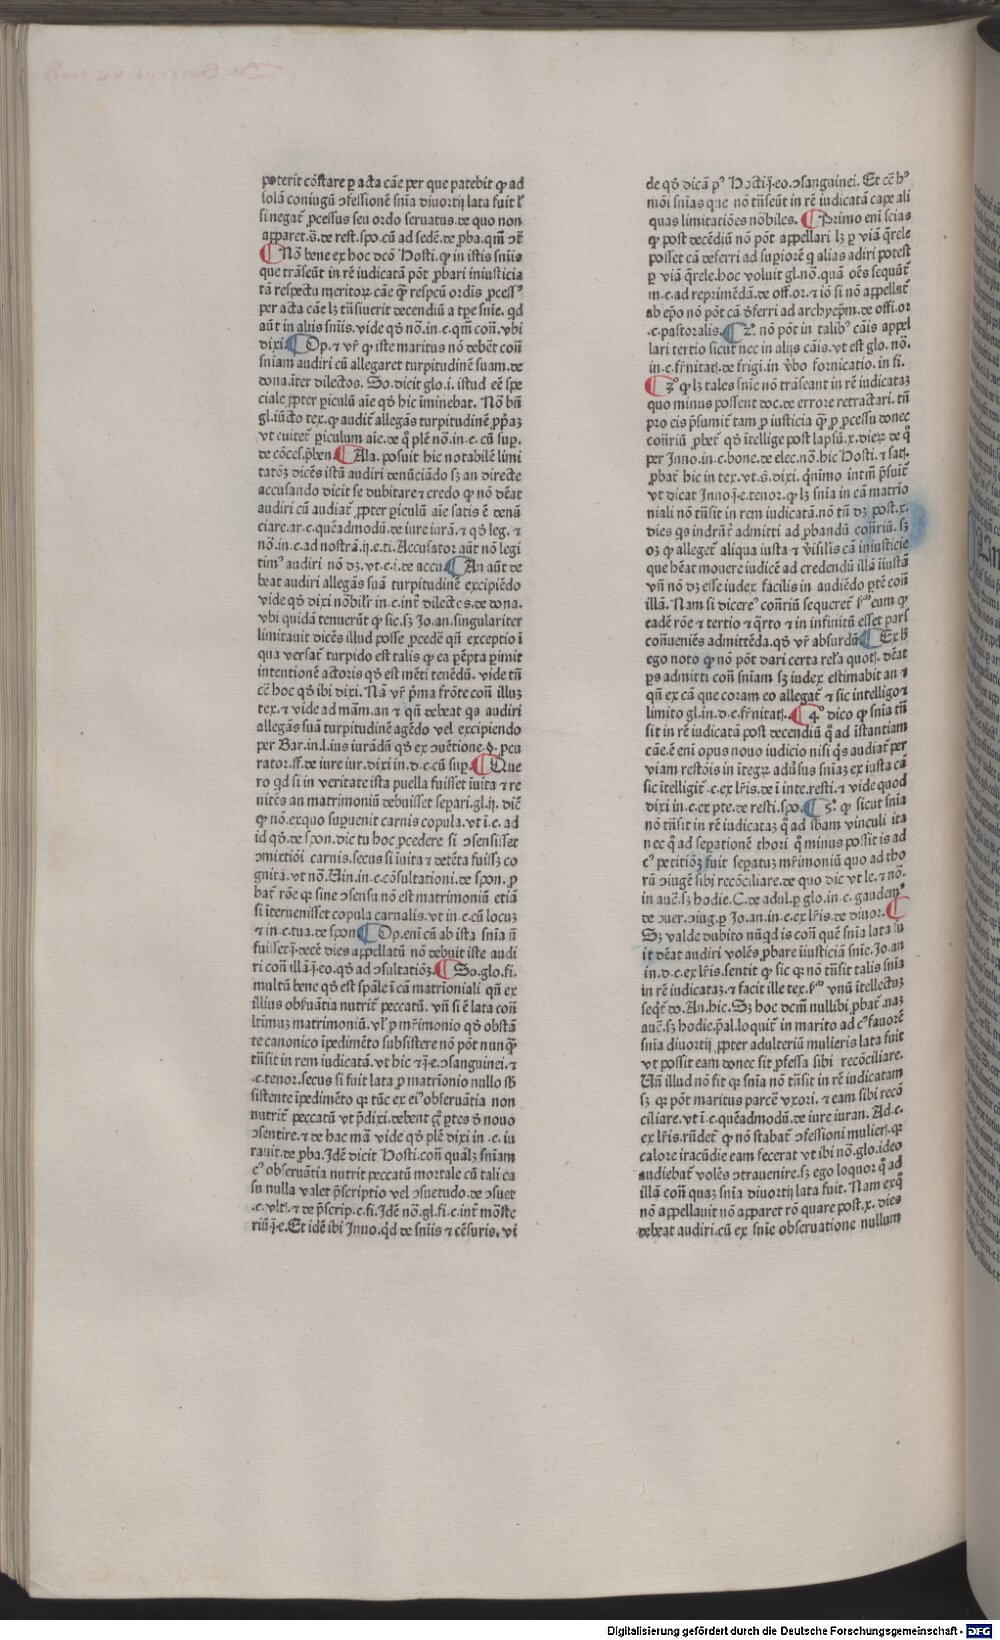 poterit cōstare ꝑ acta cāe per que patebit ꝙ ad
solā coniugū ↄfessionē snīa diuortij lata fuit ł
si negat̄ ꝓcessus seu ordo seruatus.de quo non
apparet.s̄.de rest.spo.cū ad sedē.de ꝓba.qm̄ ↄt̄
¶ Nō bene ex hoc dcō Hosti.ꝙ in istis snīis
que trāseūt in rē iudicatā pōt ꝓbari iniusticia
tā respectu meritoꝝ cāe ꝙ̄ respcū ordīs ꝓcess⁹
per acta cāe lꝫ trāsiuerit decendiū a tꝑe snīe. qd
aūt in aliis snīis.vide qd̄ nō.in.c.qm̄ con̄.vbi
dixi.¶ Op.⁊ vr̄ ꝙ iste maritus nō debēt con̄
sniam audiri cū allegaret turpitudinē suam.de
dona.īter dilectos. So.dicit glo.i. istud eē spe
ciale ꝓpter ꝑiculū aīe qd̄ hic īminebat. Nō bn̄
gl.iūcto tex.ꝙ audit̄ allegās turpitudinē ꝓpꝛiaꝫ
vt euitet̄ ꝑiculum aīe.de q̊ plē nō.in.c. cū suꝑ.
de cōces.p̄ben.¶ Ala.posuit hic notabilē limi
tatōꝫ dicēs istū audiri denūciādo sꝫ an directe
accusando dicit se dubitare ⁊ credo ꝙ nō dēat
audiri cū audiat̄ ꝓpter ꝑiculū aīe satis ē denū
ciare.ar.c.quēadmodū.de iure iurā.⁊ qd̄ leg. ⁊
nō.in.c.ad nostrā.ij.e.ti.Accusator aūt nō legi
tim⁹ audiri nō dꝫ.vt.c.i.de accu.¶ An aūt de
beat audiri allegās suā turpitudinē excipiēdo
vide qd̄ dixi nōbilr̄ in.c.int̄ dilectos.de dona.
vbi quidā tenuerūt ꝙ sic.sꝫ Jo.an.singulariter
limitauit dicēs illud posse ꝓcedē qn̄ exceptio ī
qua versat̄ turpido est talis ꝙ ea ꝑēpta ꝑimit
intentionē actoris qd̄ est mēti tenēdū. vide tn̄
cē hoc qd̄ ibi dixi. Nā vr̄ pͥma frōte con̄ illuꝫ
tex.⁊ vide ad mām.an ⁊ qn̄ debeat qs audiri
allegās suā turpitudinē agēdo vel excipiendo
per Bar.in.l.ius iurādū qd̄ ex ↄuētione.§.pcu
rator.ff.de iure iur.dixi in.d.c.cū sup.¶ Que
ro qd si in veritate ista puella fuisset īuita ⁊ re
nitēs an matrimoniū debuisset separi.gl.ij. dic̄
ꝙ nō.exquo supuenit carnis copula.vt ī.c. ad
id qd̄.de spon.dic tu hoc ꝓcedere si ↄsensisset
ↄmixtiōi carnis.secus si īuita ⁊ detēta fuissꝫ co
gnita.vt nō.Uin.in.c.cōsultationi.de spon. ꝓ
bat̄ rōe ꝙ sine ↄsensu nō est matrimoniū etiā
si īteruenisset copula carnalis.vt in.c.cū locuꝫ
⁊ in.c.tua.de spon.¶ Op.eni cū ab ista snīa n̄
fuisset ī.decē dies appellatū nō debuit iste audi
ri con̄ illā ī.eo.qd̄ ad ↄsultatiōꝫ.¶ So.glo.fi.
multū bene qd̄ est spāle ī cā matrimoniali qn̄ ex
illius obs̄uātia nutrit̄ peccatū. vn̄ si ē lata con̄
ltīmuꝫ matrimoniū.vl̄ ꝓ mr̄imonio qd̄ obstā
te canonico īpedimēto subsistere nō pōt nunꝙ̄
trāsit in rem iudicatā.vt hic ⁊ ī.e.ↄsanguinei.⁊
.c.tenor.secus si fuit lata ꝓ matrionio nullo sb̄
sistente īpedimēto ꝙ tūc ex ei⁹ obseruātia non
nutrit̄ peccatū vt p̄dixi.debent g̊ ꝑtes d̄ nouo
ↄsentire.⁊ de hac mā vide qd̄ plē dixi in .c. iu
rauit.de ꝓba.Idē dicit Hosti.con̄ qualꝫ snīam
c⁹ obseruātia nutrit peccatū mortale cū tali ca
su nulla valet p̄scriptio vel ↄsuetudo.de ↄsuet
.c.vlt.⁊ de p̄scrip.c.fi.Idē nō.gl.fi.c.int̄ mōste
riū ī.e.Et idē ibi Inno.qd̄ de snīis ⁊ cēsuris. vi
de qd̄ dicā p⁹ Hosti.ī.eo.ↄsanguinei. Et cē h⁹
mōi snīas que nō trāseūt in rē iudicatā cape ali
quas limitatiōes nōbiles. ¶ Primo eni scias
ꝙ post decēdiū nō pōt appellari lꝫ ꝑ viā q̄rele
posset cā deferri ad supiorē q̊ alias adiri potest
ꝑ viā q̄rele.hoc voluit gl.nō.quā oēs sequūt̄
in.c.ad reprimēdā.de off.or.⁊ iō si nō appellat̄
ab epō nō pōt cā d̄ferri ad archyep̄m.de offi.or
.c.pastoralis.¶ 2⁰. nō pōt in talib⁹ cāis appel
lari tertio sicut nec in alijs cāis.vt est glo. nō.
in.c.fr̄nitatꝭ.de frigi.in v̄bo fornicatio. in fi.
¶ 3⁰ ꝙ lꝫ tales snīe nō trāseant in rē iudicataꝫ
quo minus possent doc.de errore retractari. tn̄
pro eis p̄sumit̄ tam ꝓ iusticia ꝙ̄ ꝓ ꝓcessu donec
con̄riū ꝓbet̄ qd̄ ītellige post lapsū.x.dierꝫ de q̊
per Inno.in.c.bone.de elec.nō.hic Hosti.⁊ satꝭ
ꝓbat̄ hic in tex.vt.s̄.dixi. q̄nimo intm̄ p̄suīt̄
vt dicat Inno ī.e.tenor.ꝙ lꝫ snīa in cā matrio
niali nō trāsit in rem iudicatā.nō tn̄ dꝫ post.x.
dies qs indr̄nt̄ admitti ad ꝓbandū con̄riū. sꝫ
oꝫ ꝙ alleget̄ aliqua iusta ⁊ v̄isilis cā iniusticie
que hēat mouere iudicē ad credendū illā īiustā
vn̄ nō dꝫ esse iudex facilis in audiēdo ꝑtē con̄
illā. Nam si dicere⁹ con̄riū sequeret̄ ẜm eum ꝙ
eadē rōe ⁊ tertio ⁊ q̄rto ⁊ in infinitū esset pars
con̄ueniēs admittēda.qd̄ vr̄ absurdū.¶ Ex h̄
ego noto ꝙ nō pōt dari certa rel̄a quotꝭ. dēat
ꝑs admitti con̄ snīam sꝫ iudex estimabit an ⁊
qn̄ ex cā que coram eo allegat̄ ⁊ sic intelligo ⁊
limito gl.in.d.c.fr̄nitatꝭ.¶ 4⁰ dico ꝙ snīa tn̄
sit in rē iudicatā post decendiū q̊ ad īstantiam
cāe.ē eni opus nouo iudicio nisi q̊s audiat̄ per
viam restōis in ītegꝝ adūsus snīaꝫ ex iusta cā
sic ītelligit̄.c.ex lr̄is.de ī inte.resti.⁊ vide quod
dixi in.c.ex ꝑte.de resti.spo.¶ 5⁰. ꝙ sicut snīa
nō trāsit in rē iudicataꝫ q̊ ad sb̄am vinculi ita
nec q̊ ad seꝑationē thori q̊ minus possit is ad
c⁹ petitiōꝫ fuit sepatuꝫ mr̄imoniū quo ad tho
rū ↄiugē sibi recōciliare.de quo dic vt le.⁊ nō.
in auē.sꝫ hodie.C.de adul.ꝑ glo.in.c. gaudem⁹
de ↄuer.ↄiug.ꝑ Jo.an.in.c.ex lr̄is.de diuor.¶
Sꝫ valde dubito nūqd is con̄ quē snīa lata fu
it dēat audiri volēs ꝓbare īiusticiā snīe. Jo.an
in.d.c.ex lr̄is.sentit ꝙ sic qꝛ nō trāsit talis snīa
in rē iudicataꝫ.⁊ facit ille tex.ẜm vnū ītellectuꝫ
seqt̄ do.An.hic.Sꝫ hoc dcm̄ nullibi ꝓbat̄ .naꝫ
auē.sꝫ hodie.p̄al.loquit̄ in marito ad c⁹ fauorē
snīa diuortij ꝓpter adulteriū mulieris lata fuit
vt possit eam donec sit ꝓfessa sibi recōciliare.
Un̄ illud nō fit ꝙ snīa nō trāsit in rē iudicatam
sꝫ ꝙ pōt maritus parcē vxori. ⁊ eam sibi recō
ciliare.vt ī.c.quēadmodū.de iure iuran. Ad.c.
ex lr̄is.rn̄det̄ ꝙ nō stabat̄ ↄfessioni mulierꝭ.qꝛ
calore iracūdie eam fecerat vt ibi nō.glo.ideo
audiebat̄ volēs ↄtrauenire.sꝫ ego loquor q̊ ad
illā con̄ quaꝫ snīa diuortij lata fuit. Nam exq̊
nō appellauit nō apparet rō quare post.x. dies
debeat audiri.cū ex snīe obseruatione nullum
Digitalisierung gefördert durch die Deutsche Forschungsgemeinschaft - DFG